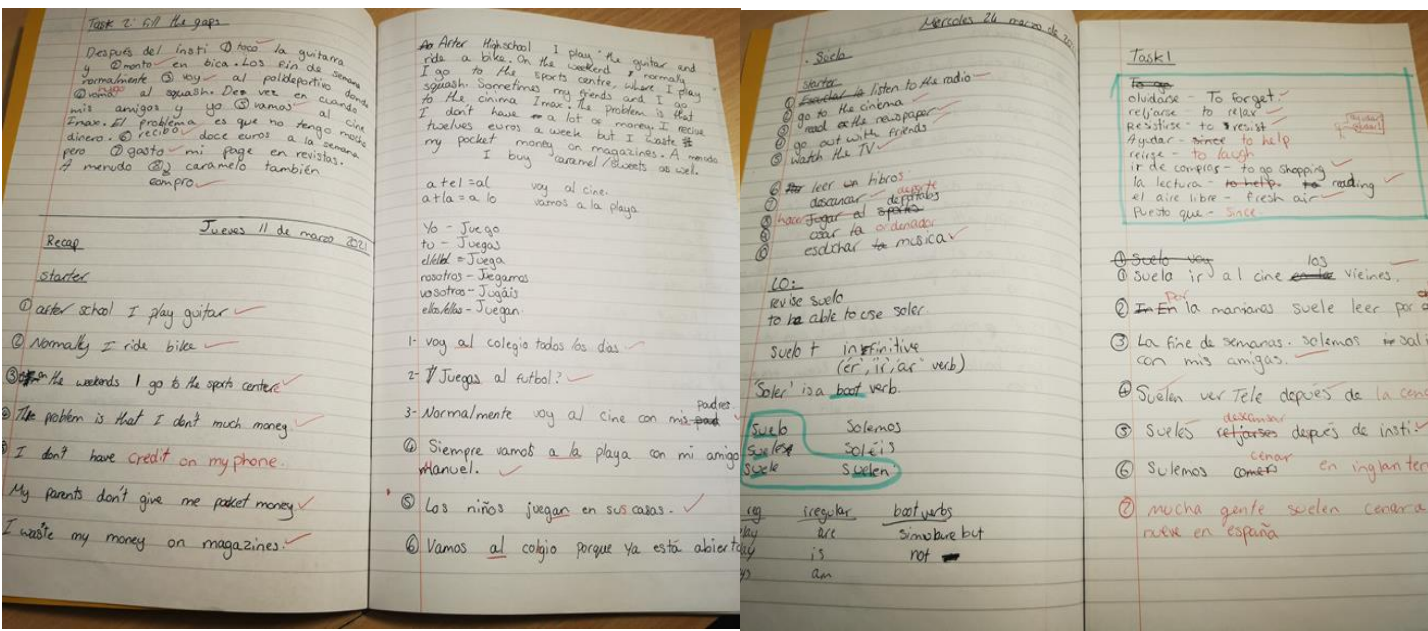 Task 2: Fill the gaps
Después del insti ① toco la guitarra
y ② monto en bica. Los fin de semana
normalmente ③ voy al polideportivo donde
④ juego al squash. Dez vez en cuando
mis amigos y yo ⑤ vamos al cine
Imax. El problema es que no tengo mocho
dinero. ⑥ recibo doce euros a la semana
pero ⑦ gasto mi page en revistas.
A menudo ⑧ caramelo también
compro
Jueves 11 de marzo 2021
Recap
starter
① after school I play guitar
② Normally I ride bike
③ on the weekends I go to the sports centere
The problem is that I don't much money.
I don't have credit on my phone.
My parents don't give me pocket money
I waste my money on magazines.
After Highschool I play the guitar and
ride a bike. On the weekend I normally
I go to the sports centre, where I play
squash. Sometimes my friends and I go
to the cinima Imax. The problem is that
I don't have a lot of money. I recise
twelves euros a week but I waste
my pocket money on magazines. A menudo
I buy caramel/sweets as well.
a+el=al voy al cine.
a+la=a lo vamos a la playa
Yo - Juego
tu - Juegas
el/ella = Juega
nosotros - Juegamos
vosotros - Jugáis
ellos/ellas - Juegan.
1- voy al colegio todos los días
2- Juegas al futbol?
3- Normalmente voy al cine con mis padres.
④ Siempre vamos a la playa con mi amigo
Manuel.
⑤ Los niños juegan en sus casas.
⑥ Vamos al colgio porque ya está abierto
Mercoles 24 marzo de 202
. Suelo
starter
① listen to the radio
② go to the cinema
③ read the newspaper
④ go out with friends
⑤ watch the TV
⑥ leer libros
⑦ descancar
⑧ hacer deporte
⑨ usar la ordenador
⑩ esduchar musica
LO:
revise suelo
to be able to use soler.
suelo + infinitive
(er, ir, ar verb)
'Soler' is a boot verb.
Suelo Solemos
Sueles Soléis
Suele Suelen
reg irregular boot verbs
are simulare but
is not
am
Task 1
olvidarse - To forget.
reljarse - to relax
Resistirse - to resist
Ayudar - since to help
reirse - to laugh
ir de compras - to go shopping
la lectura - to help. reading
el aire libre - fresh air
Puesto que - Since.
① Suelo voy
① suela ir al cine los vieines.
② por la mananas suele leer por
③ La fine de semanas. solemos sali
con mis amigas.
④ Suelen ver Tele depués de la cena
⑤ Sueles descansar depués de insti.
⑥ Sulemos cenar en inglanter
⑦ mucha gente suelen cenar a
nueve en españa